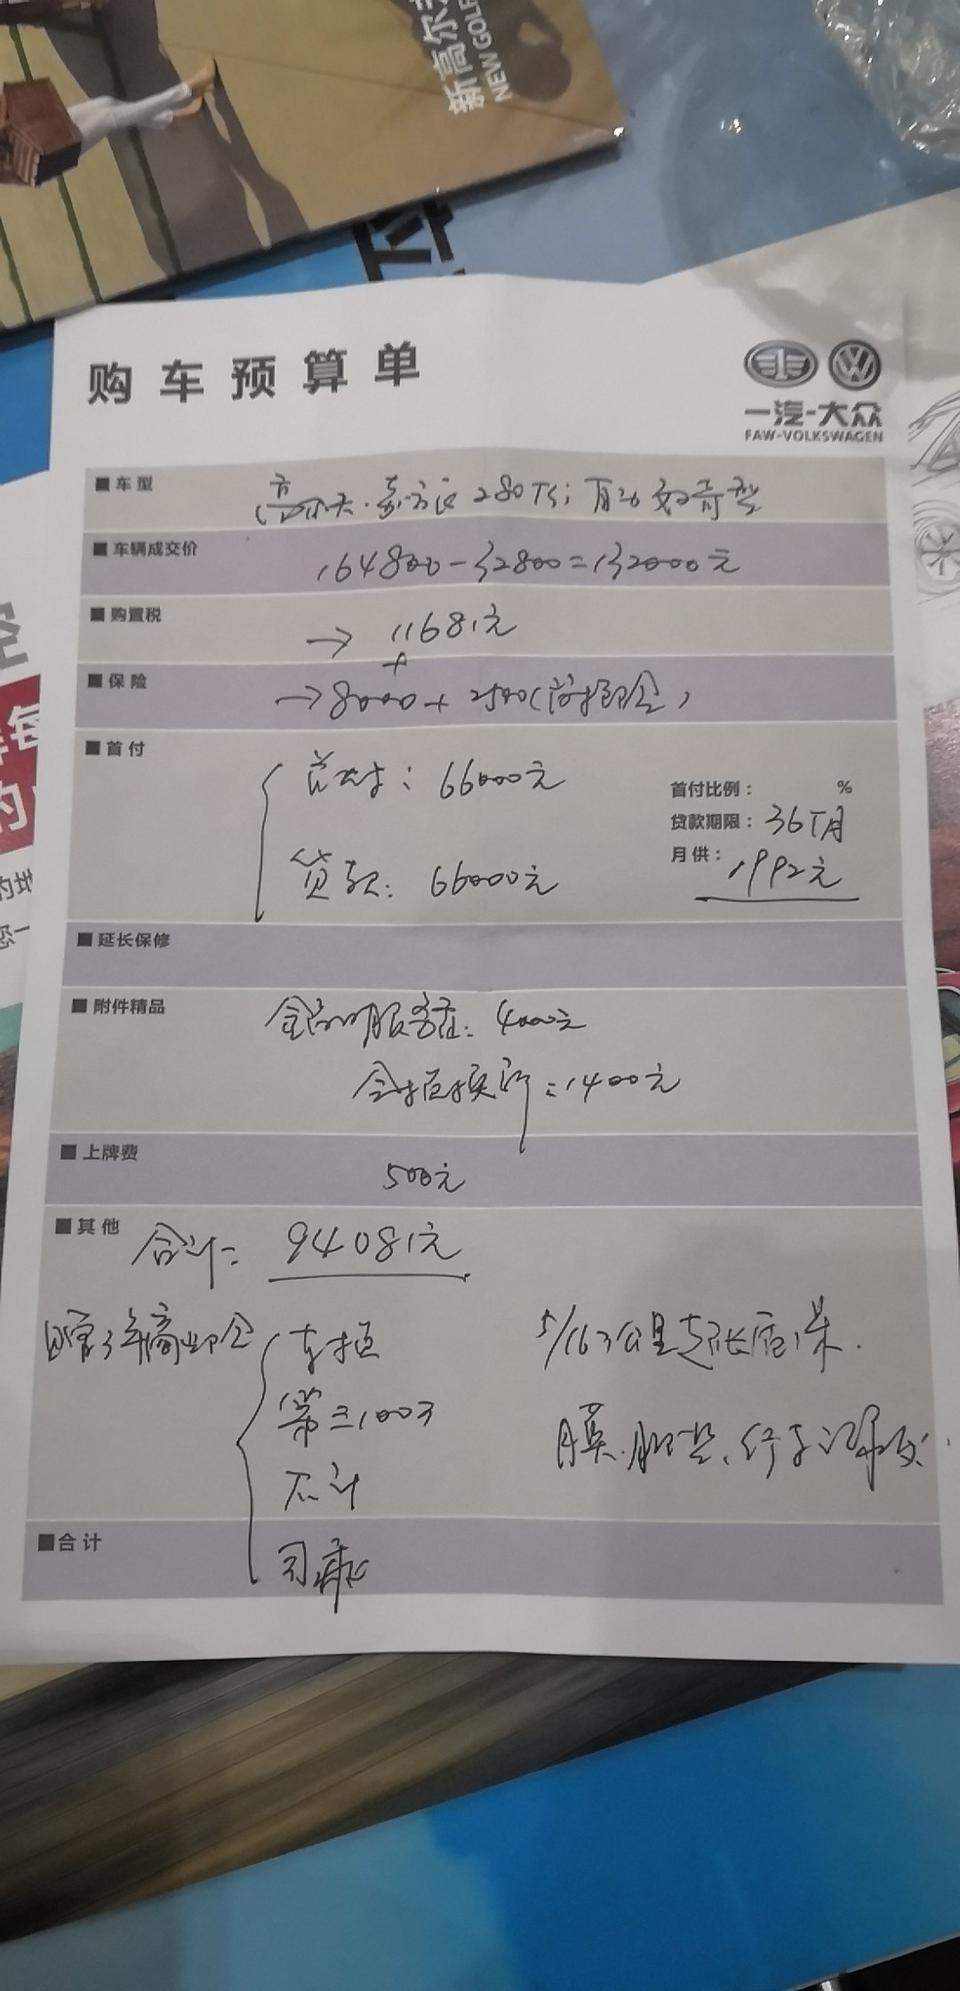 新高尔
NEW GOLF
购车预算单
一汽-大众
FAW-VOLKSWAGEN
车型
高尔夫·嘉旅 280TSI 自动 好奇型
车辆成交价
164800-32800=132000元
购置税
→ 11681元
+
保险
→8000+2500(续保押金)
首付
首付: 66000元
首付比例: %
贷款期限: 36个月
贷款: 66000元
月供: 1992元
延长保修
附件精品
金融服务费: 4000元
1400元
上牌费
500元
其他
合计: 94081元
3年商业险
车损
5/16万公里超长质保.
第三100万
膜.脚垫.行车记录仪
不计
合计
司乘